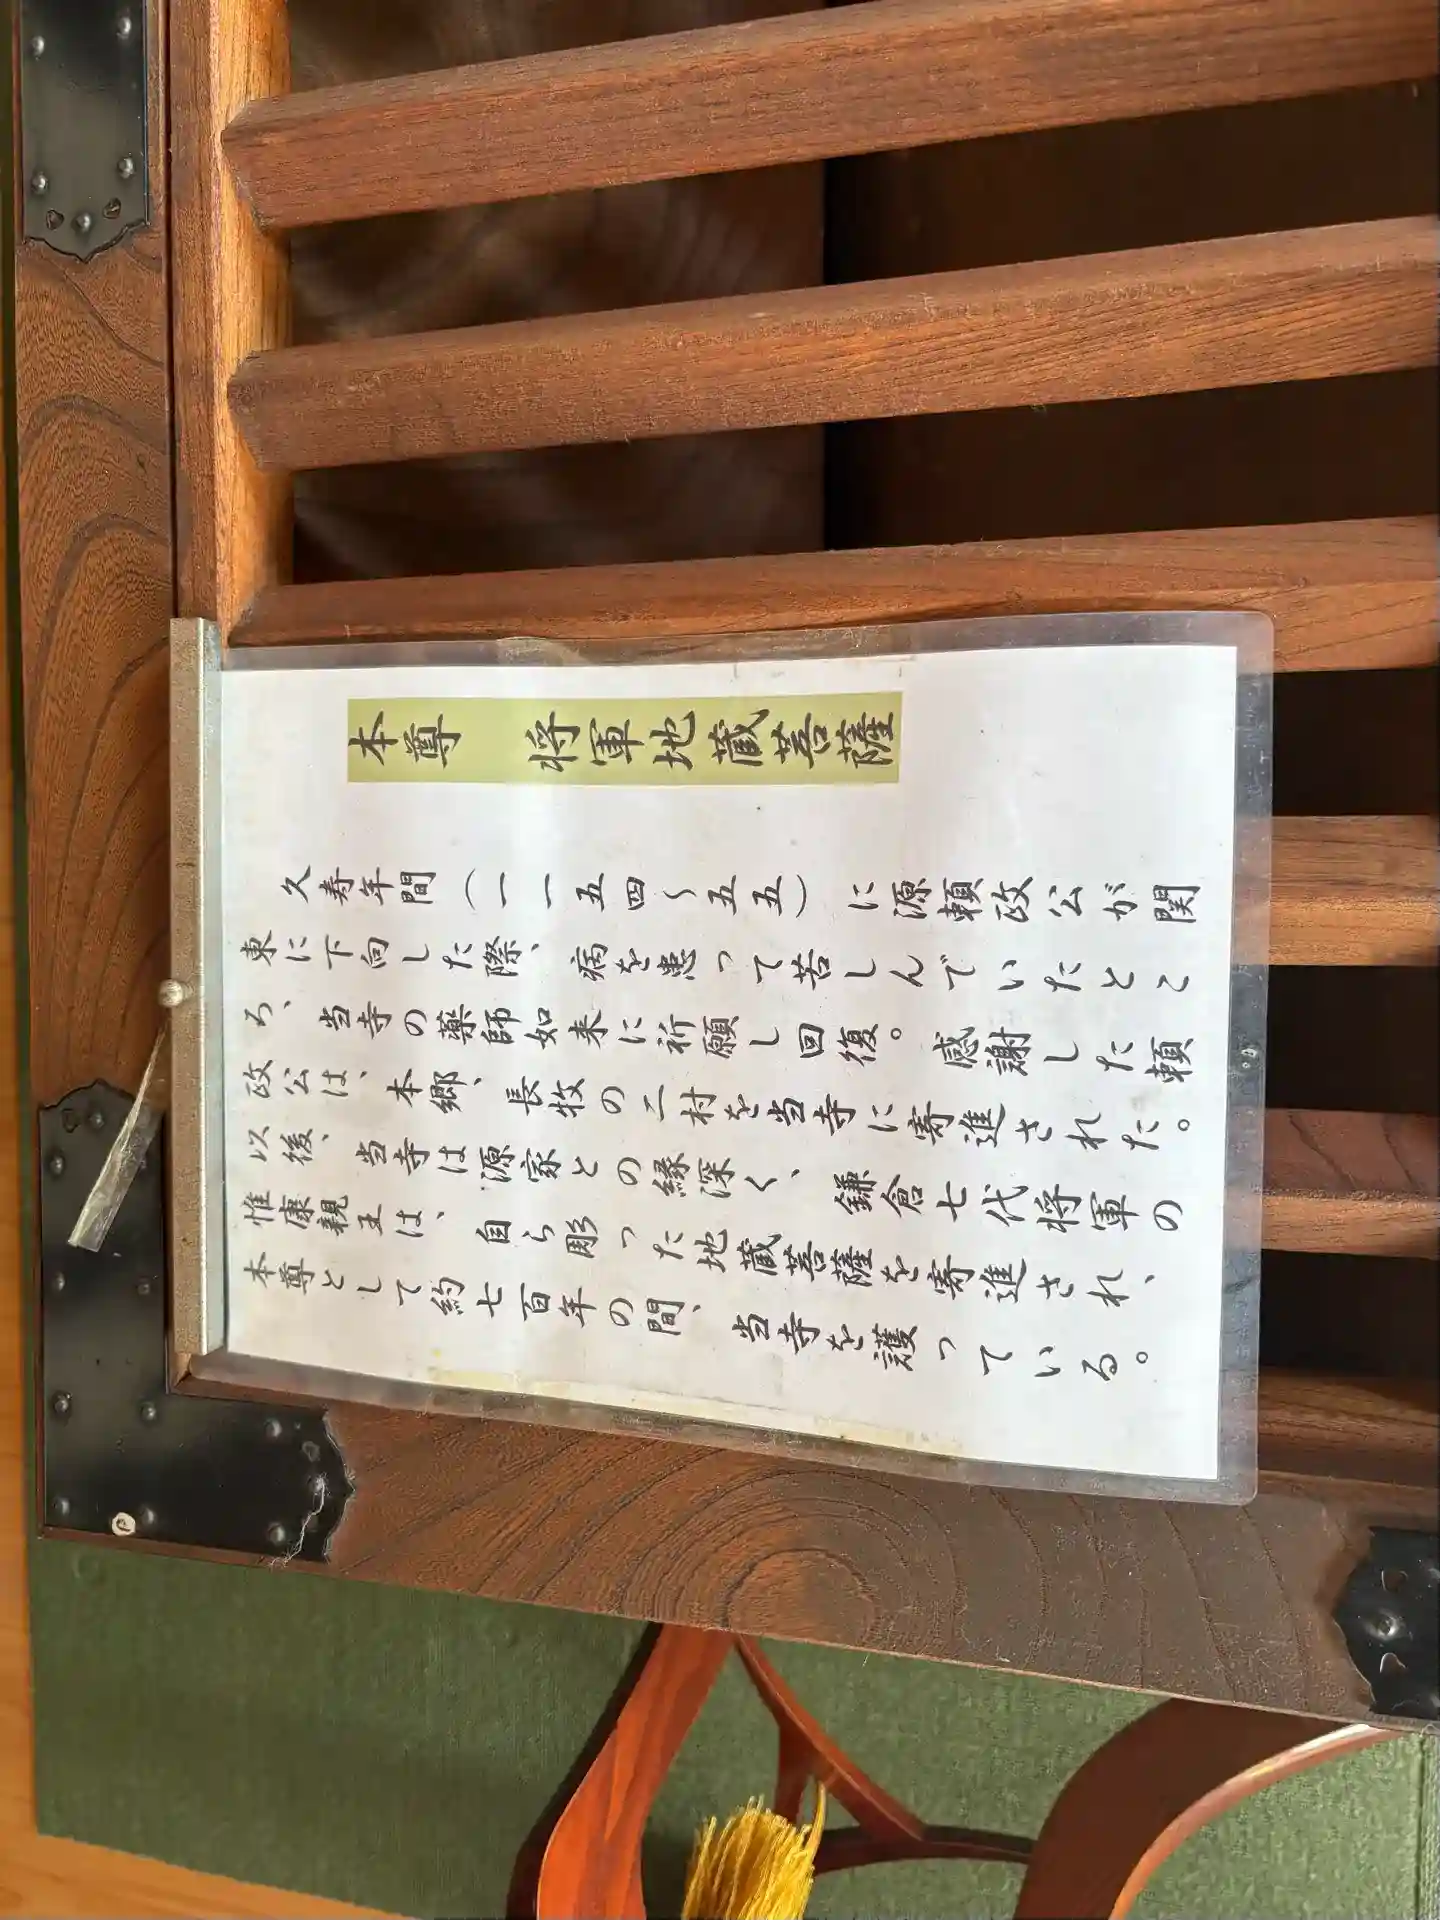 本尊　将軍地蔵菩薩
久寿年間（一一五四〜五五）に源頼政公が関
東に下向した際、病を患って苦しんでいたとこ
ろ、当寺の薬師如来に祈願し回復。感謝した頼
政公は、本郷、長牧の二村を当寺に寄進された。
以後、当寺は源家との縁深く、鎌倉七代将軍の
惟康親王は、自ら彫った地蔵菩薩を寄進され、
本尊として約七百年の間、当寺を護っている。